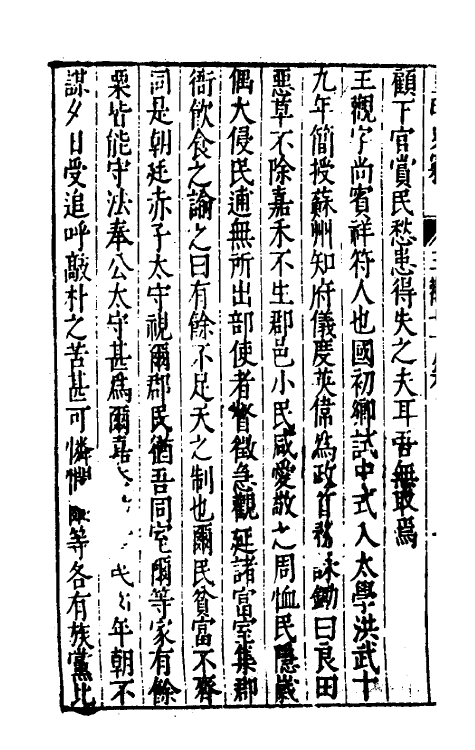 顧下官賞民愁患得失之夫耳吾無取焉
王觀字尚賓祥符人也國初鄉試中式入太學洪武十
九年簡授蘇州知府儀度英偉為政首務詠鋤曰良田
惡草不除嘉禾不生郡邑小民咸愛敬之周恤民隱歲
偶大侵民逋無所出部使者督徵急觀延諸富室集郡
衙飲食之諭之曰有餘不足天之制也爾民貧富不齊
同是朝廷赤子太守視爾郡民猶吾同室爾等家有餘
粟皆能守法奉公太守甚為爾嘉 年朝不
謀夕日受追呼敲朴之苦甚可憐憫 等各有族黨比